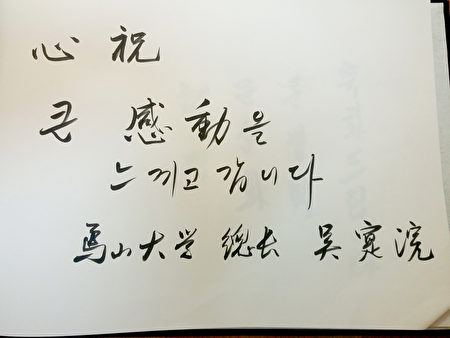 心 祝
큰 感動을
느끼고 갑니다
馬山大学 總长 吳寔浣